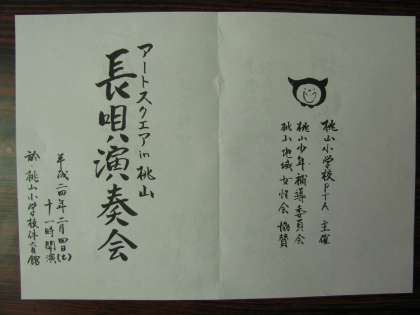 桃山小学校PTA 主催
桃山少年補導委員会
桃山地域女性会 協賛
アートスクエアin桃山
長唄演奏会
平成二四年二月四日(土)
十一時開演
於 桃山小学校体育館